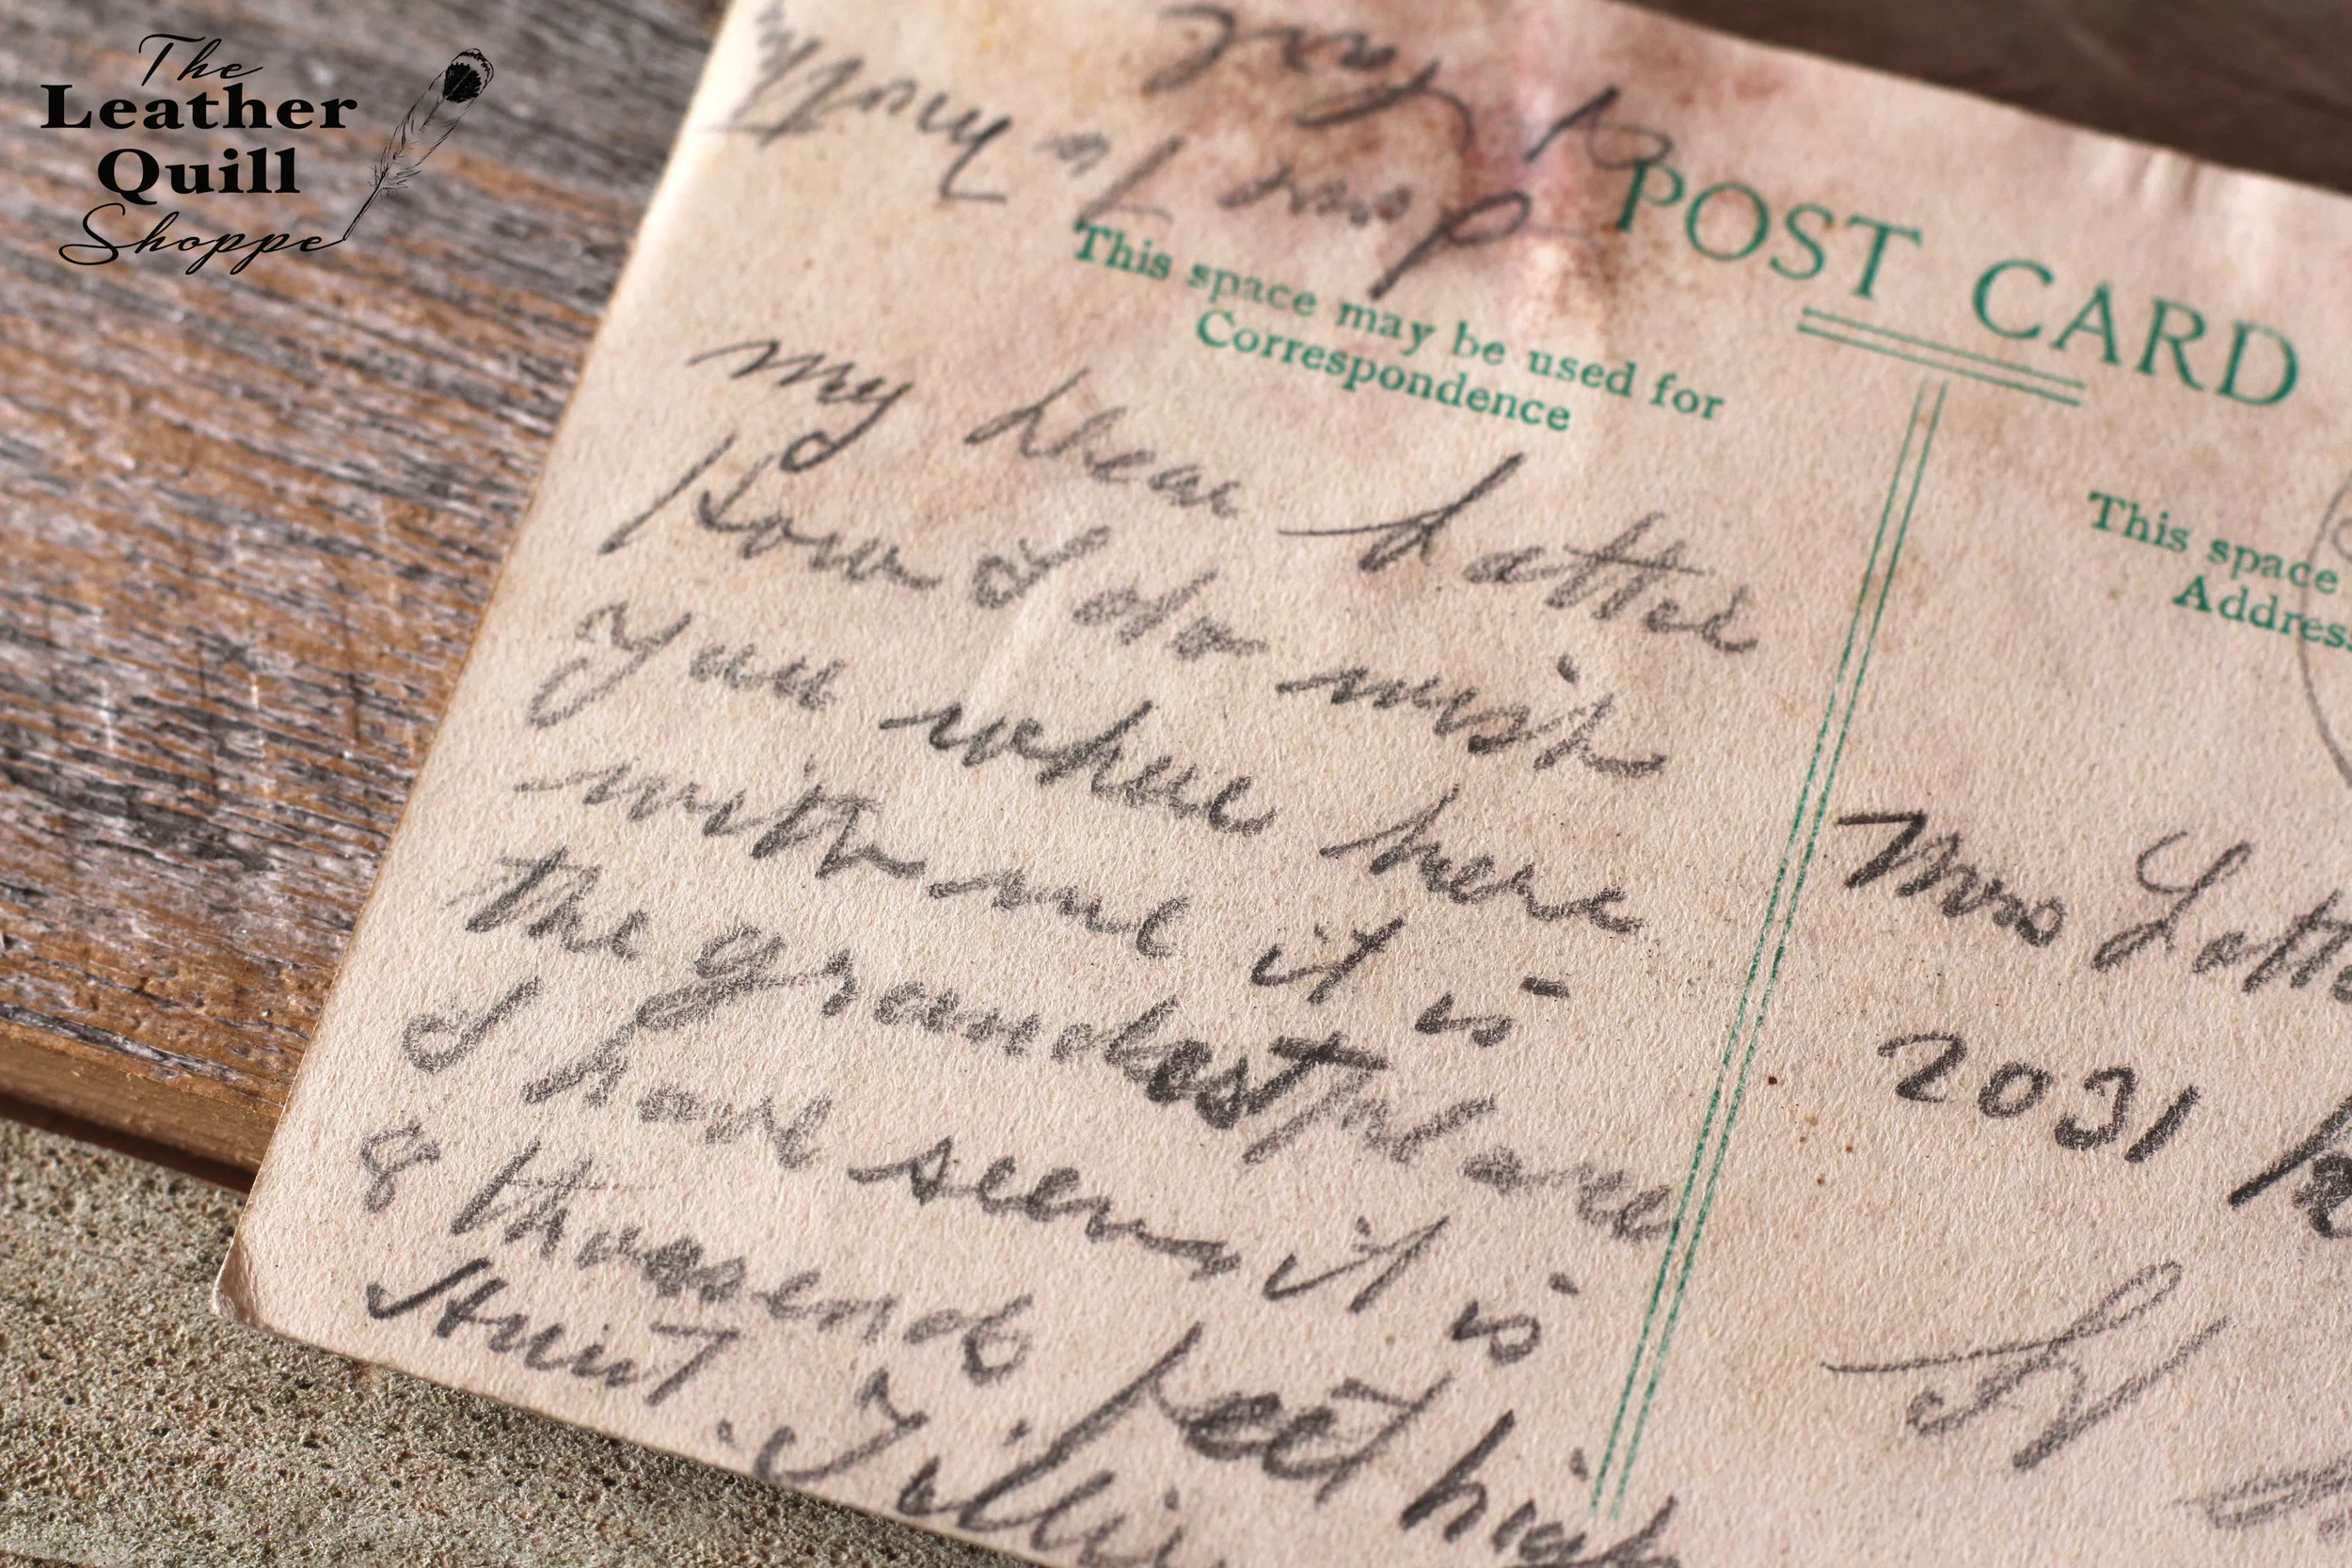 The
Leather
Quill
Shoppe
POST CARD
This space may be used for
Correspondence
My Dear Lottie
How I do wish
you whare here
with me it is
the grandest place
I have seen it is
8 thousend feet high
Aunt Tillie
love to
This space
Address
Mrs Lott
2031
St